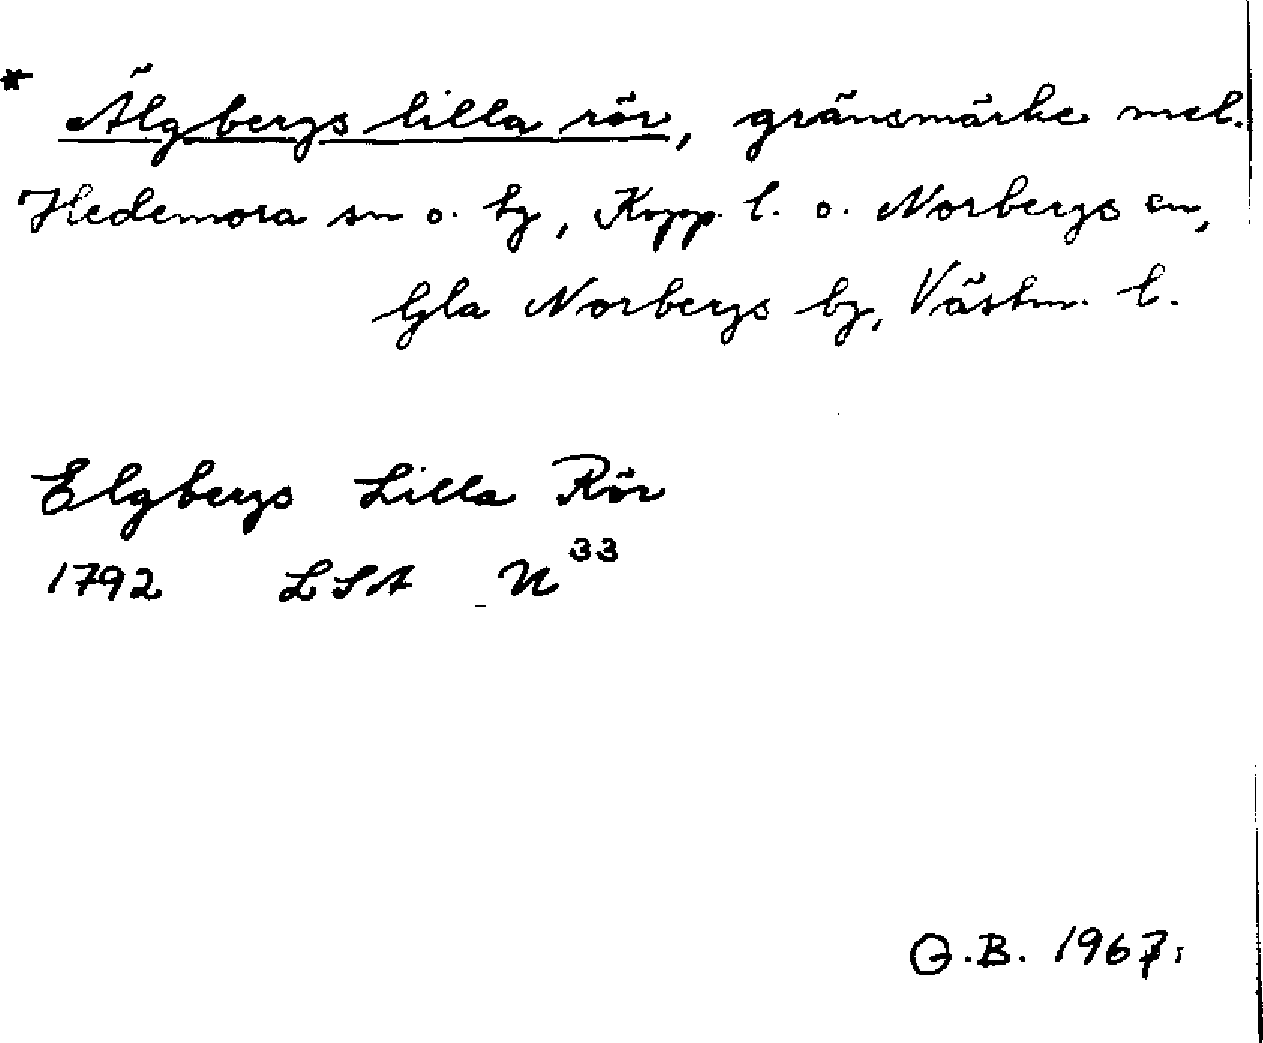 * Älgbergs lilla rör, gränsmärke mel.
Hedemora sn o. by, Kopp. l. o. Norbergs sn,
Gla Norbergs by, Västm. l.
Elgbergs Lilla Rör
1792 LSA N 33
G.B. 1967.